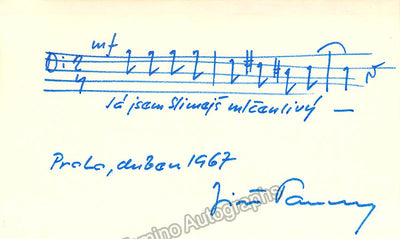 mf
2
4
Já jsem šlimejš mlčenlivý —
Praha, duben 1967
Jiří
Tamino Autographs